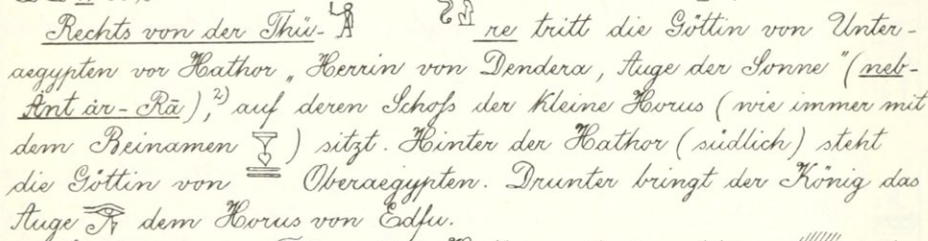 Rechts von der Thü- re tritt die Göttin von Unter-
aegypten vor Hathor „Herrin von Dendera, Auge der Sonne" (neb-
Ȧnt ȧr-Rā),²⁾ auf deren Schoſs der kleine Horus (wie immer mit
dem Beinamen ) sitzt. Hinter der Hathor (südlich) steht
die Göttin von Oberaegypten. Drunter bringt der König das
Auge 𓂀 dem Horus von Edfu.